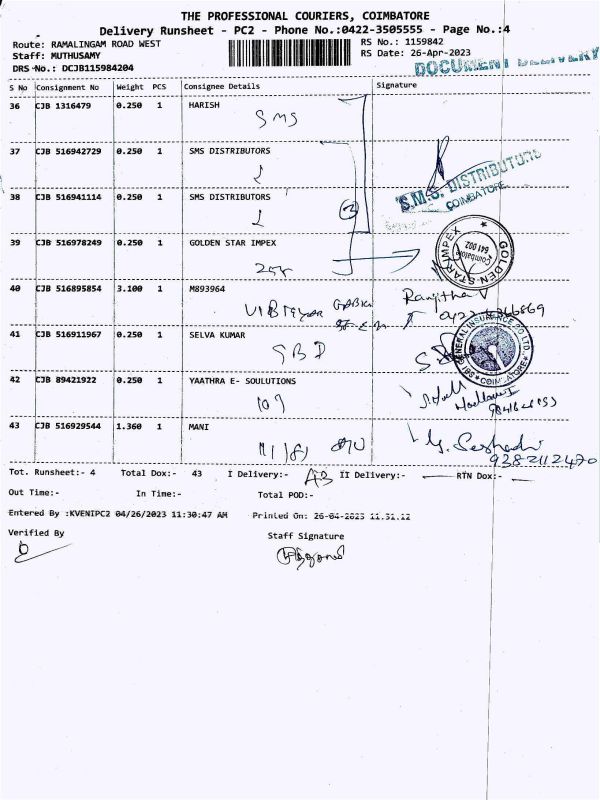 THE PROFESSIONAL COURIERS, COIMBATORE
Delivery Runsheet - PC2 - Phone No.:0422-3505555 - Page No.:4
Route: RAMALINGAM ROAD WEST
RS No.: 1159842
Staff: MUTHUSAMY
RS Date: 26-Apr-2023
DRS No.: DCJB115984204
DOCUMENT DELIVERY
S No Consignment No Weight PCS Consignee Details Signature
36 CJB 1316479 0.250 1 HARISH
SMS
37 CJB 516942729 0.250 1 SMS DISTRIBUTORS
38 CJB 516941114 0.250 1 SMS DISTRIBUTORS
S.M.S. DISTRIBUTORS
COIMBATORE
39 CJB 516978249 0.250 1 GOLDEN STAR IMPEX
GOLDEN STAR IMPEX
Coimbatore
641 002
40 CJB 516895854 3.100 1 M893964
Ranjitha V
41 CJB 516911967 0.250 1 SELVA KUMAR
GENERAL INSURANCE CO LTD
COIMBATORE
42 CJB 89421922 0.250 1 YAATHRA E- SOULUTIONS
43 CJB 516929544 1.360 1 MANI
9382112470
Tot. Runsheet:- 4 Total Dox:- 43 I Delivery:- 43 II Delivery:- RTN Dox:-
Out Time:- In Time:- Total POD:-
Entered By :KVENIPC2 04/26/2023 11:30:47 AM Printed On: 26-04-2023 11.31.12
Verified By Staff Signature